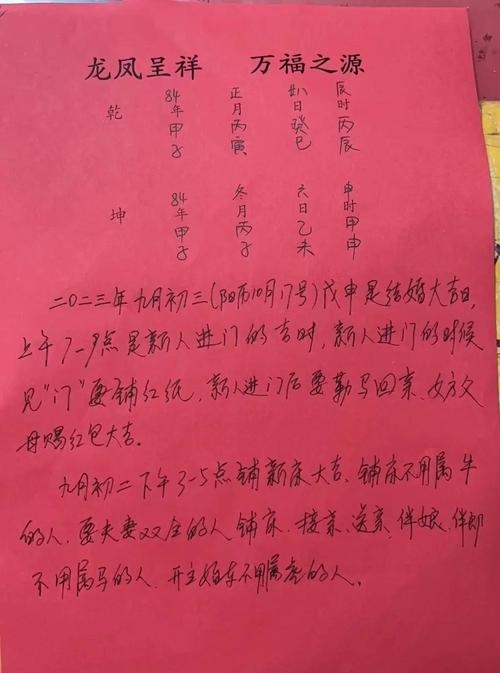 龙凤呈祥 万福之源
乾 84年甲子 正月丙寅 廿八日癸巳 辰时丙辰
坤 84年甲子 冬月丙子 六日乙未 申时甲申
二〇二三年九月初三(阳历10月17号)戊申是结婚大吉日,
上午7-9点是新人进门的吉时,新人进门的时候
见“门”要铺红纸,新人进门后要勒马回亲、女方父
母赐红包大吉。
九月初二下午3-5点铺新床大吉、铺床不用属牛
的人、要夫妻双全的人铺床、接亲、送亲、伴娘、伴郎
不用属马的人、开主婚车不用属虎的人。